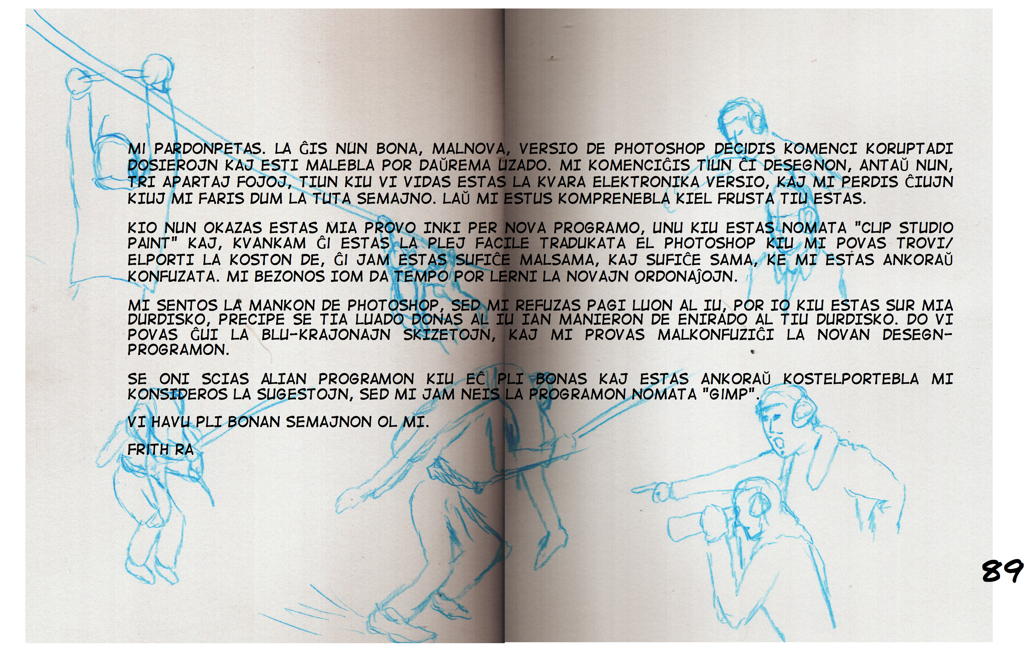 MI PARDONPETAS. LA ĜIS NUN BONA, MALNOVA, VERSIO DE PHOTOSHOP DECIDIS KOMENCI KORUPTADI
DOSIEROJN KAJ ESTI MALEBLA POR DAŬREMA UZADO. MI KOMENCIĜIS TIUN ĈI DESEGNON, ANTAŬ NUN,
TRI APARTAJ FOJOJ, TIUN KIU VI VIDAS ESTAS LA KVARA ELEKTRONIKA VERSIO, KAJ MI PERDIS ĈIUJN
KIUJ MI FARIS DUM LA TUTA SEMAJNO. LAŬ MI ESTUS KOMPRENEBLA KIEL FRUSTA TIU ESTAS.
KIO NUN OKAZAS ESTAS MIA PROVO INKI PER NOVA PROGRAMO, UNU KIU ESTAS NOMATA "CLIP STUDIO
PAINT" KAJ, KVANKAM ĜI ESTAS LA PLEJ FACILE TRADUKATA EL PHOTOSHOP KIU MI POVAS TROVI/
ELPORTI LA KOSTON DE, ĜI JAM ESTAS SUFIĈE MALSAMA, KAJ SUFIĈE SAMA, KE MI ESTAS ANKORAŬ
KONFUZATA. MI BEZONOS IOM DA TEMPO POR LERNI LA NOVAJN ORDONAĴOJN.
MI SENTOS LA MANKON DE PHOTOSHOP, SED MI REFUZAS PAGI LUON AL IU, POR IO KIU ESTAS SUR MIA
DURDISKO, PRECIPE SE TIA LUADO DONAS AL IU IAN MANIERON DE ENIRADO AL TIU DURDISKO. DO VI
POVAS ĜUI LA BLU-KRAJONAJN SKIZETOJN, KAJ MI PROVAS MALKONFUZIĜI LA NOVAN DESEGN-
PROGRAMON.
SE ONI SCIAS ALIAN PROGRAMON KIU EĈ PLI BONAS KAJ ESTAS ANKORAŬ KOSTELPORTEBLA MI
KONSIDEROS LA SUGESTOJN, SED MI JAM NEIS LA PROGRAMON NOMATA "GIMP".
VI HAVU PLI BONAN SEMAJNON OL MI.
FRITH RA
89